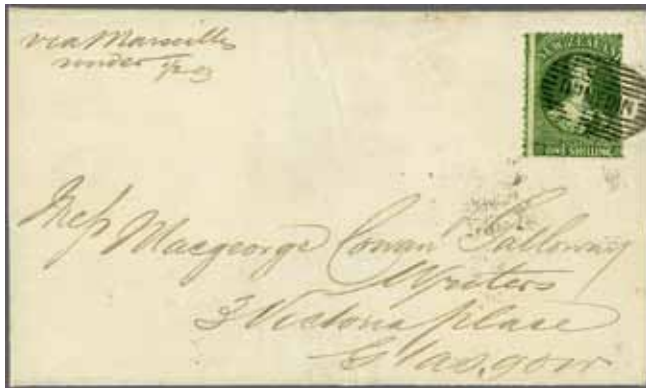 via Marseilles
under ½ oz
NEW ZEALAND
ONE SHILLING
Mess Macgeorge Cowan Galloway
Writers
3 Victoria place
Glasgow